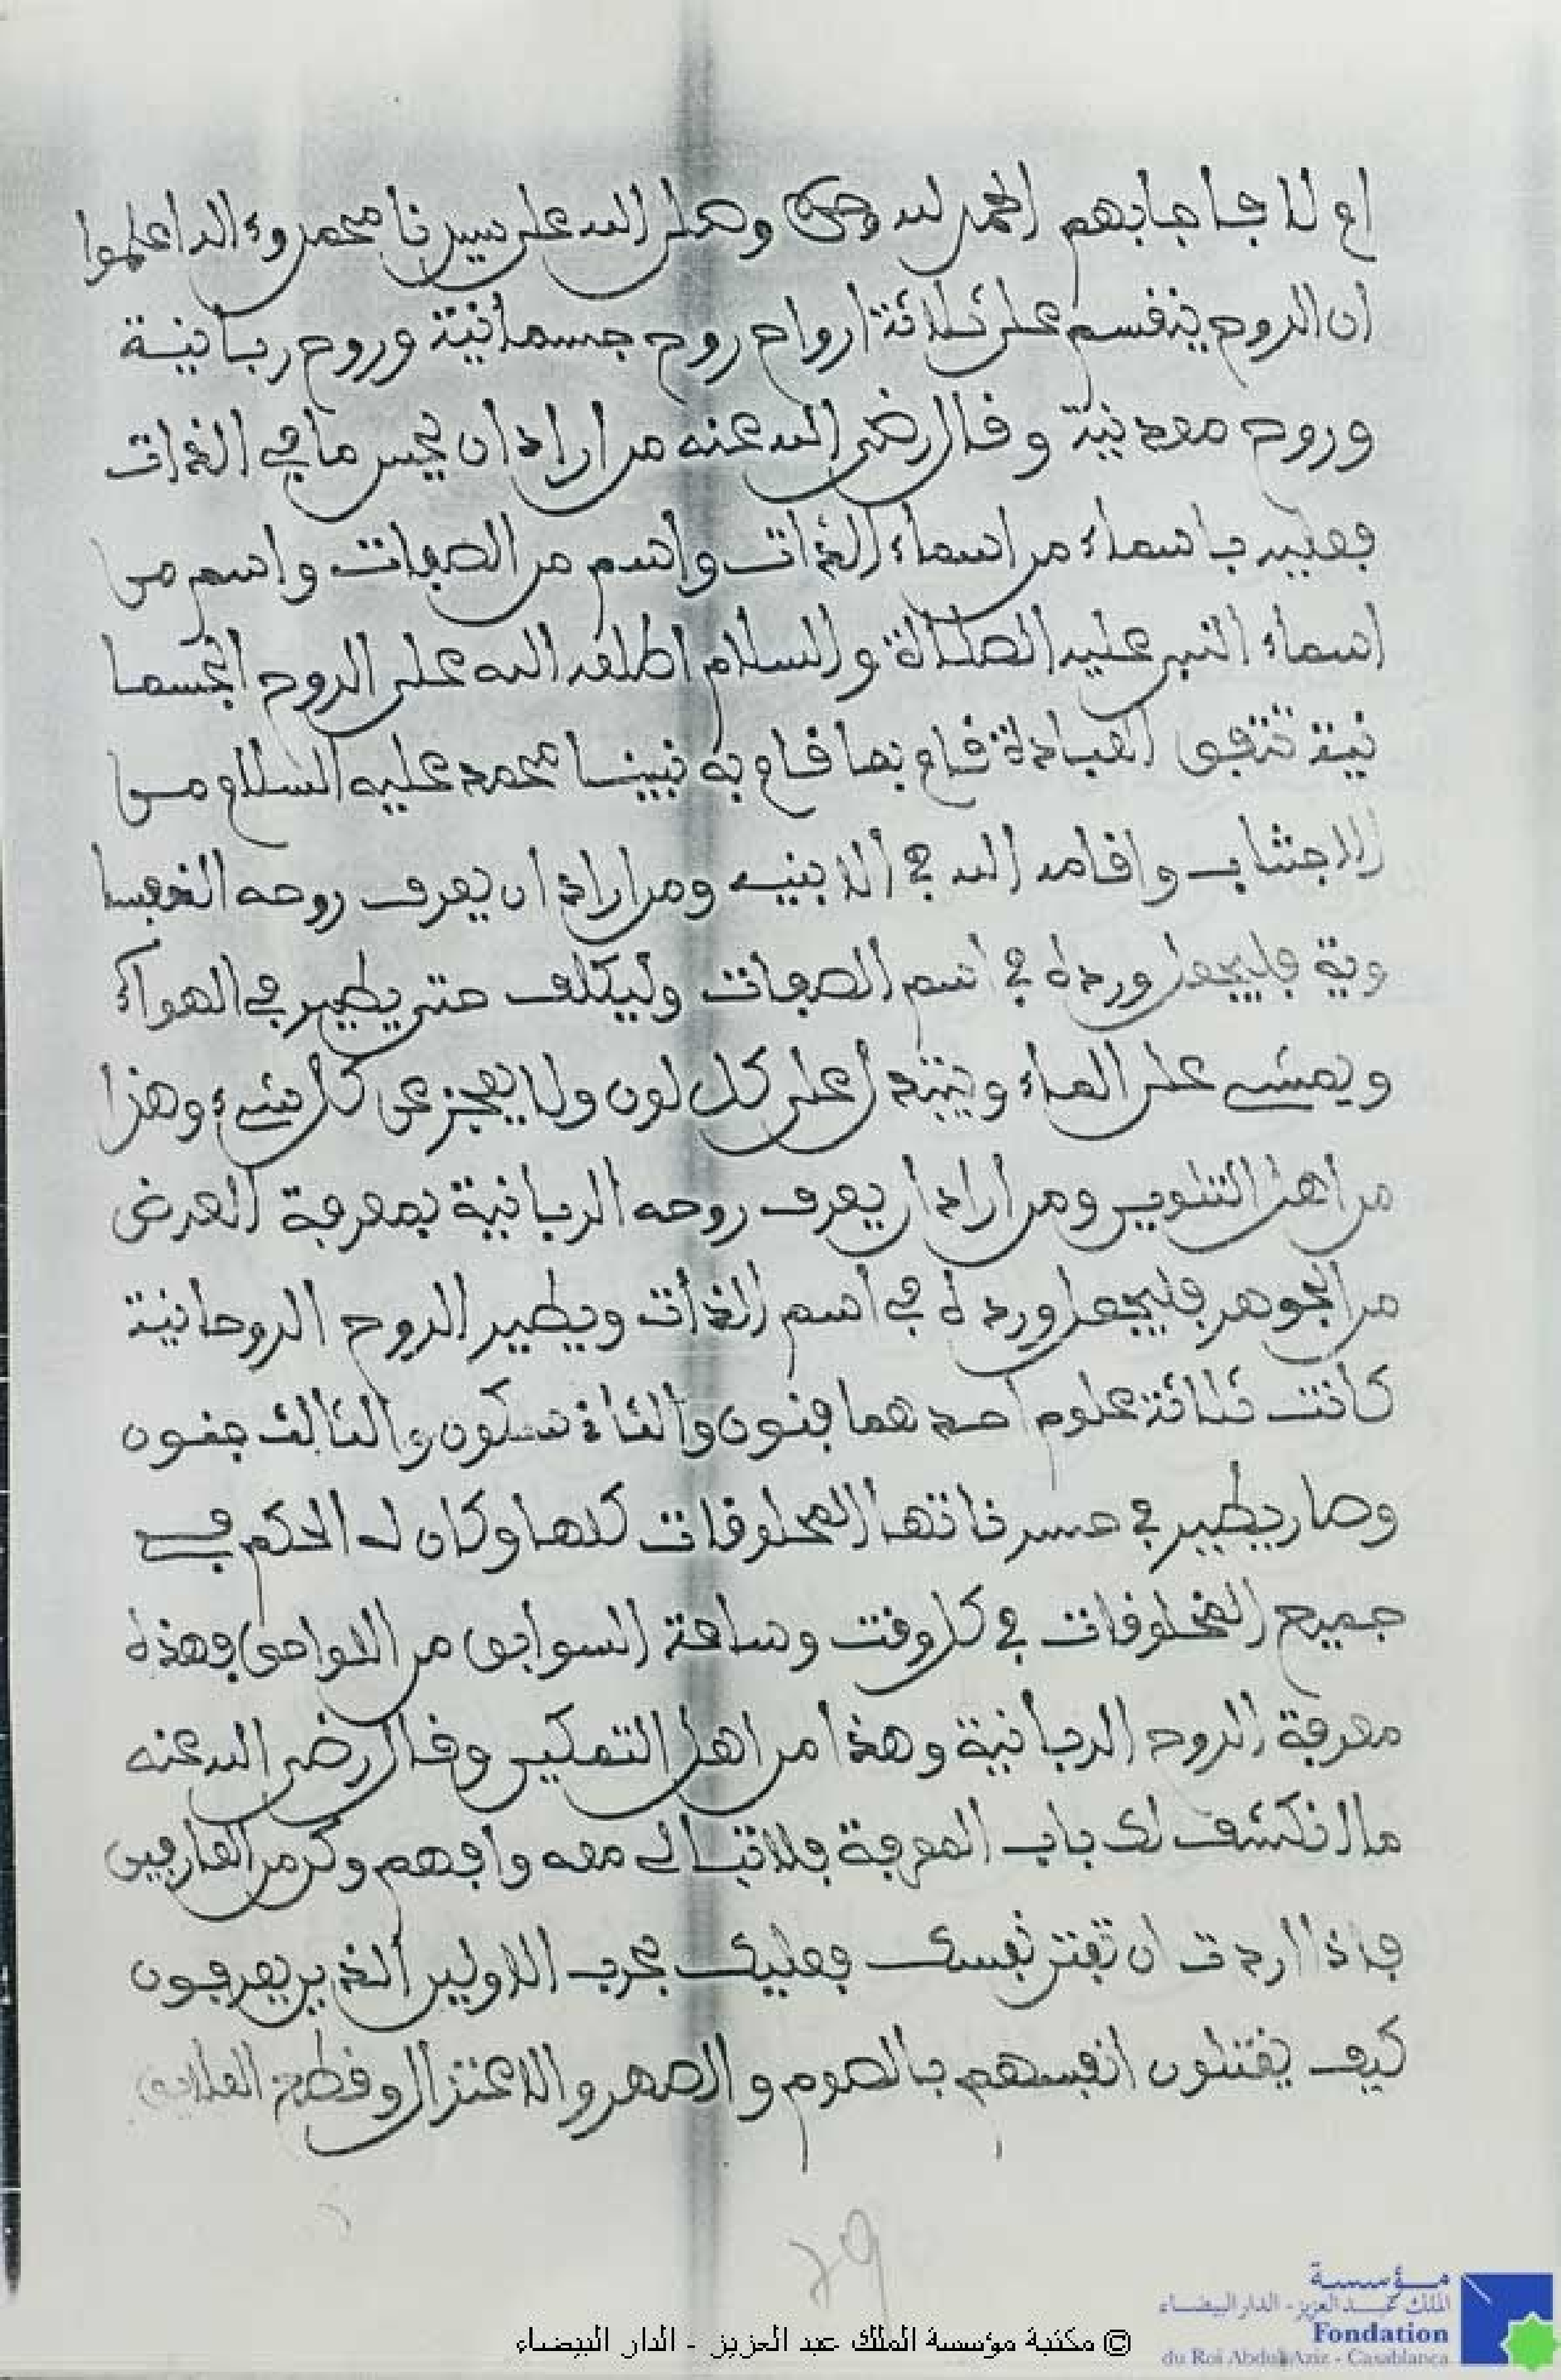 ام لا فاجابهم الحمد لله وحده وصلى الله على سيدنا محمد وءاله اعلموا
ان الروح ينقسم على ثلاثة ارواح روح جسمانية وروح ربانية
وروح معدنية وقال رضي الله عنه من اراد ان يحس ما في الذات
فعليه باسماء من اسماء الذات واسم من الصفات واسم من
اسماء النبي عليه الصلاة والسلام اطلعه الله على الروح الجسما
نية تترقى العبادة قام بما قام به نبينا محمد عليه السلام من
الاجتناب واقامه الله في الابنيه ومن اراد ان يعرف روحه النفسا
وية فليجعل ورده في اسم الصفات وليكلف حتى يطير في الهواء
ويمشي على الماء ويتبدل على كل لون ولا يعجز عن كل شيء وهذا
من اهل التلوين ومن اراد ان يعرف روحه الربانية بمعرفة العرض
من الجوهر فليجعل ورده في اسم الذات ويطير الروح الروحانية
كانت ثلاثة علوم احدهما فنون والثاني سكون والثالث جنون
وصار يطير في المخلوقات كلها وكان له الحكم في
جميع المخلوقات في كل وقت وساعة السوابق من اللواحق فهذه
معرفة الروح الربانية وهذا من اهل التمكين وقال رضي الله عنه
ما انكشف لك باب المعرفة فلا تبالي معه وافهم وكن من العارفين
فاذا اردت ان تفتن نفسك فعليك بحرب الاولين الذين يعرفون
كيف يقتلون انفسهم بالصوم والصهر والاعتزال وقطع العلايق
79
مؤسسة
الملك عبد العزيز - الدار البيضاء
Fondation
du Roi Abdul Aziz - Casablanca
© مكتبة مؤسسة الملك عبد العزيز - الدار البيضاء